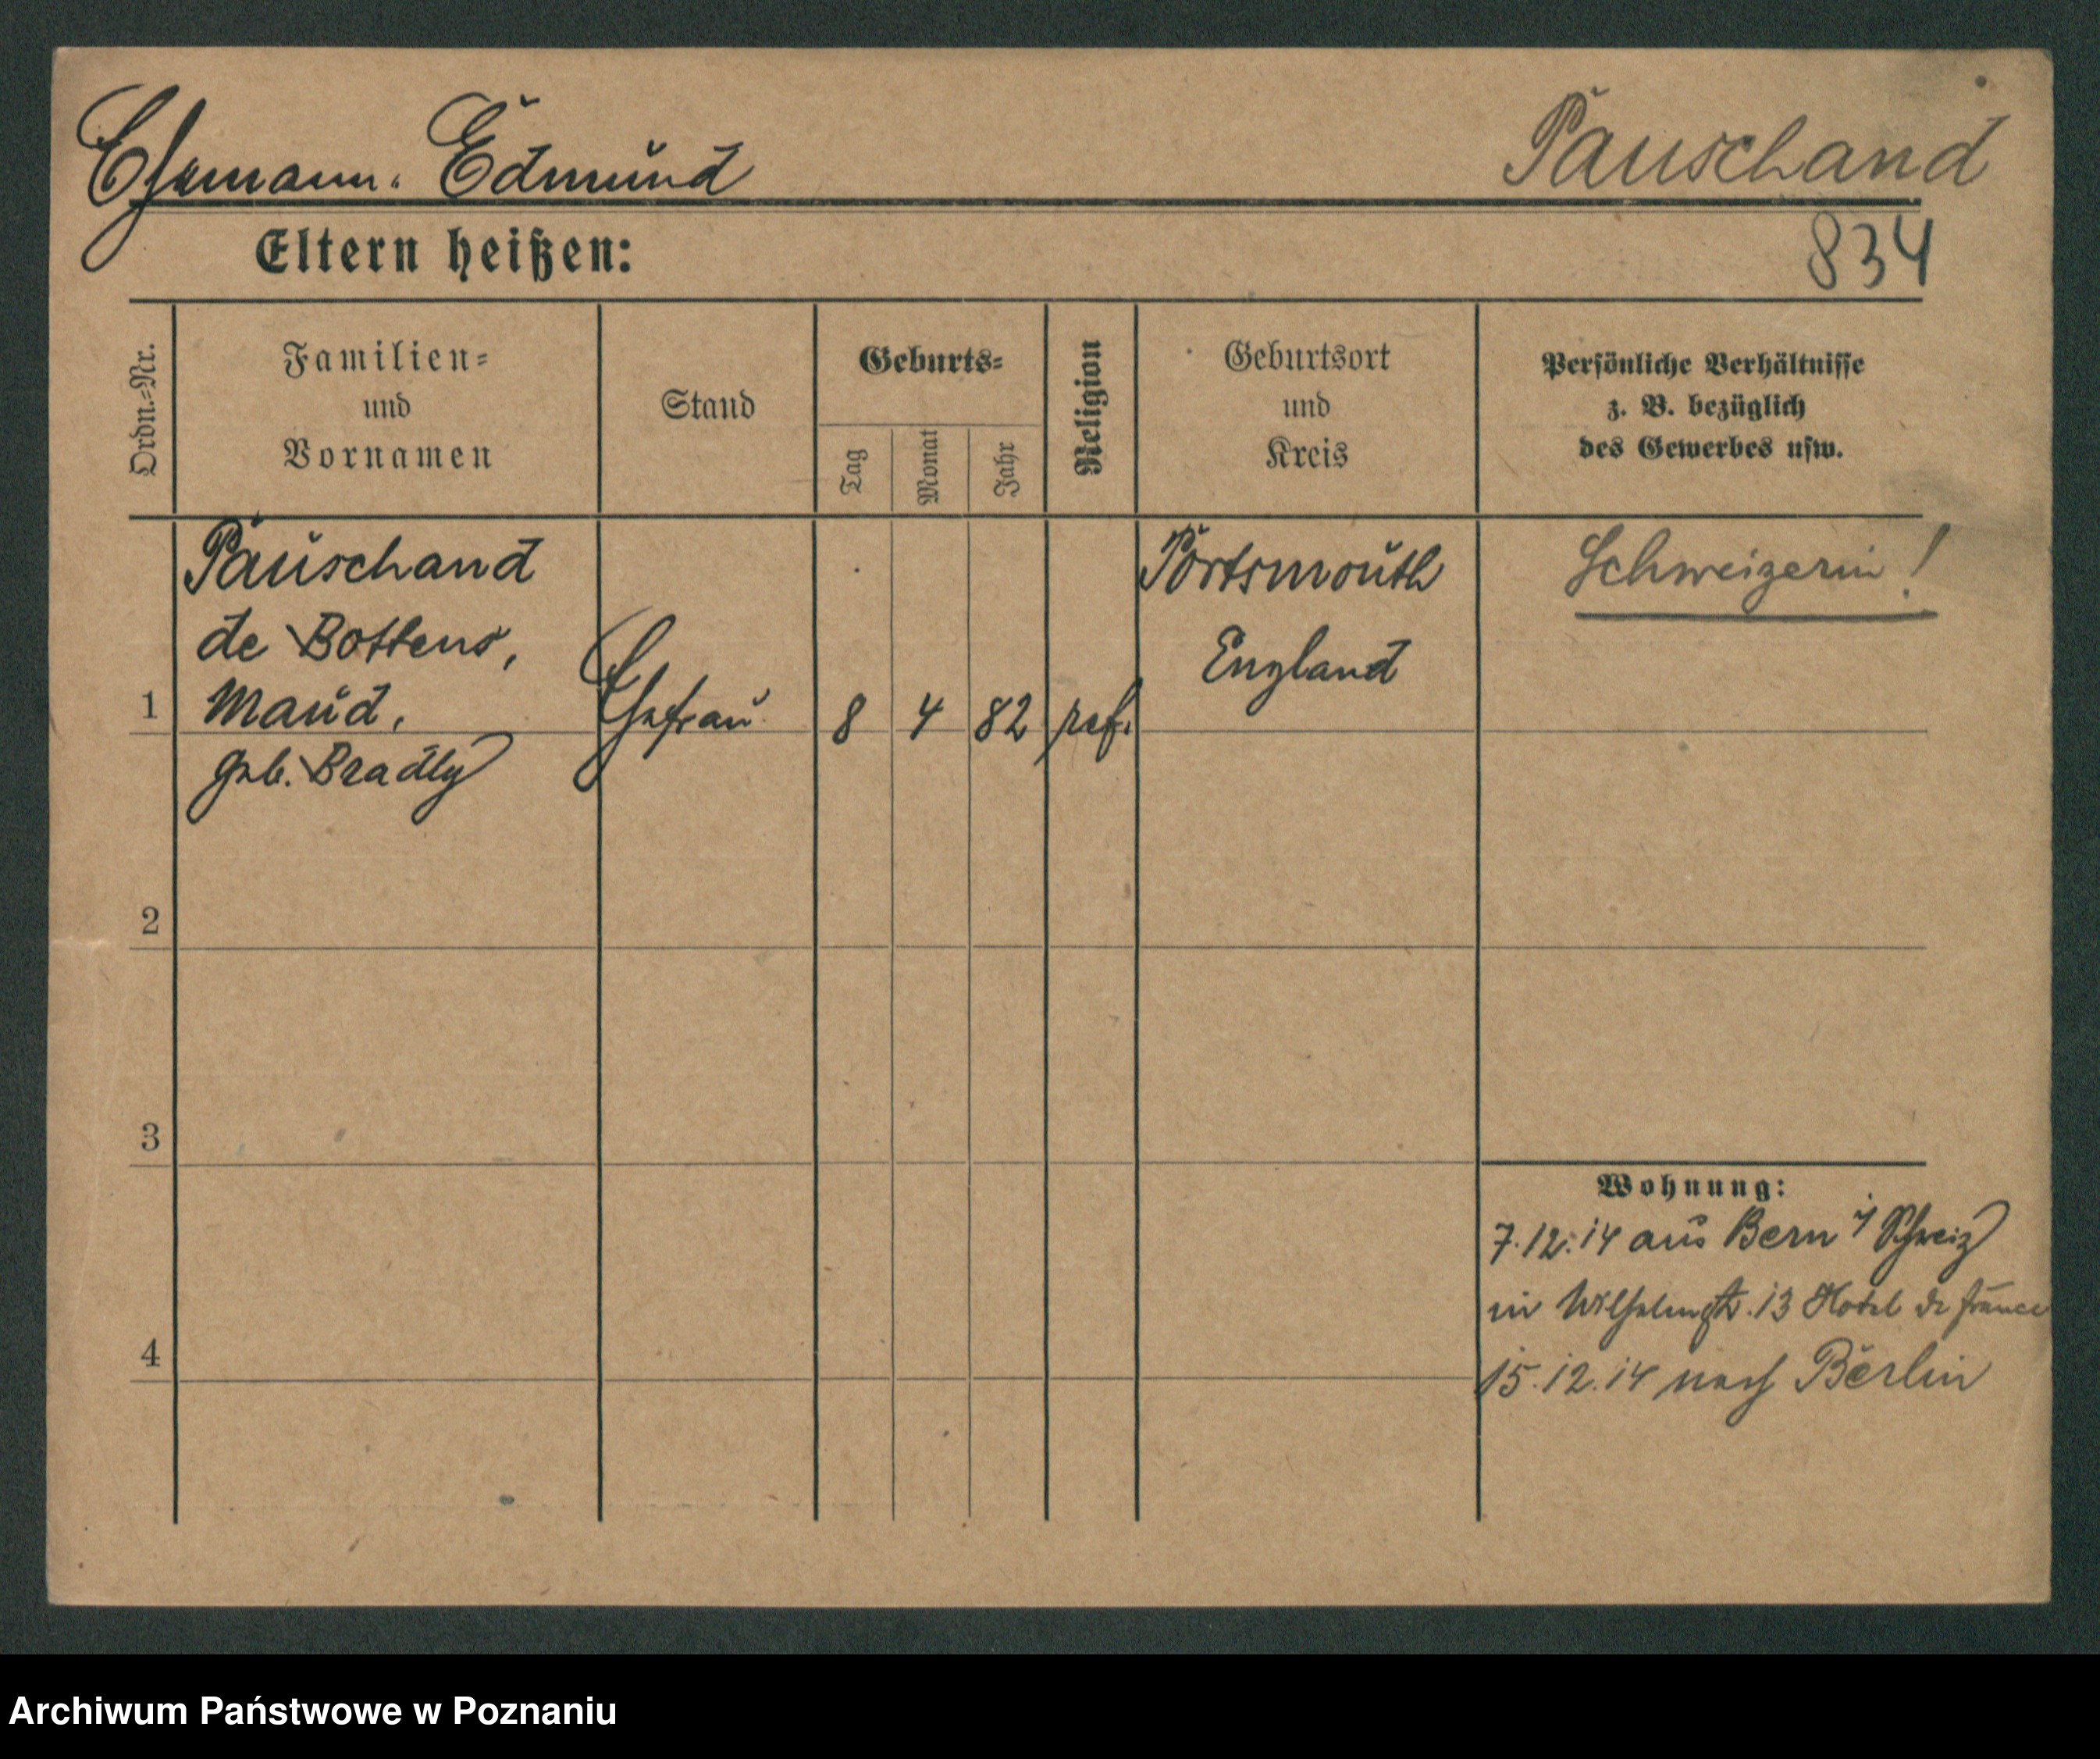 Ehemann. Edmund
Pauschand
Eltern heißen:
834
Ordn.-Nr.
Familien-
und
Vornamen
Stand
Geburts-
Tag
Monat
Jahr
Religion
Geburtsort
und
Kreis
Persönliche Verhältnisse
z. B. bezüglich
des Gewerbes usw.
1
Pauschand
de Bottens,
Maud,
geb. Bradly
Ehefrau
8
4
82
ref.
Portsmouth
England
Schweizerin!
2
3
4
Wohnung:
7.12.14 aus Bern i/ Schweiz
in Wilhelmstr. 13 Hotel de france
15.12.14 nach Berlin
Archiwum Państwowe w Poznaniu